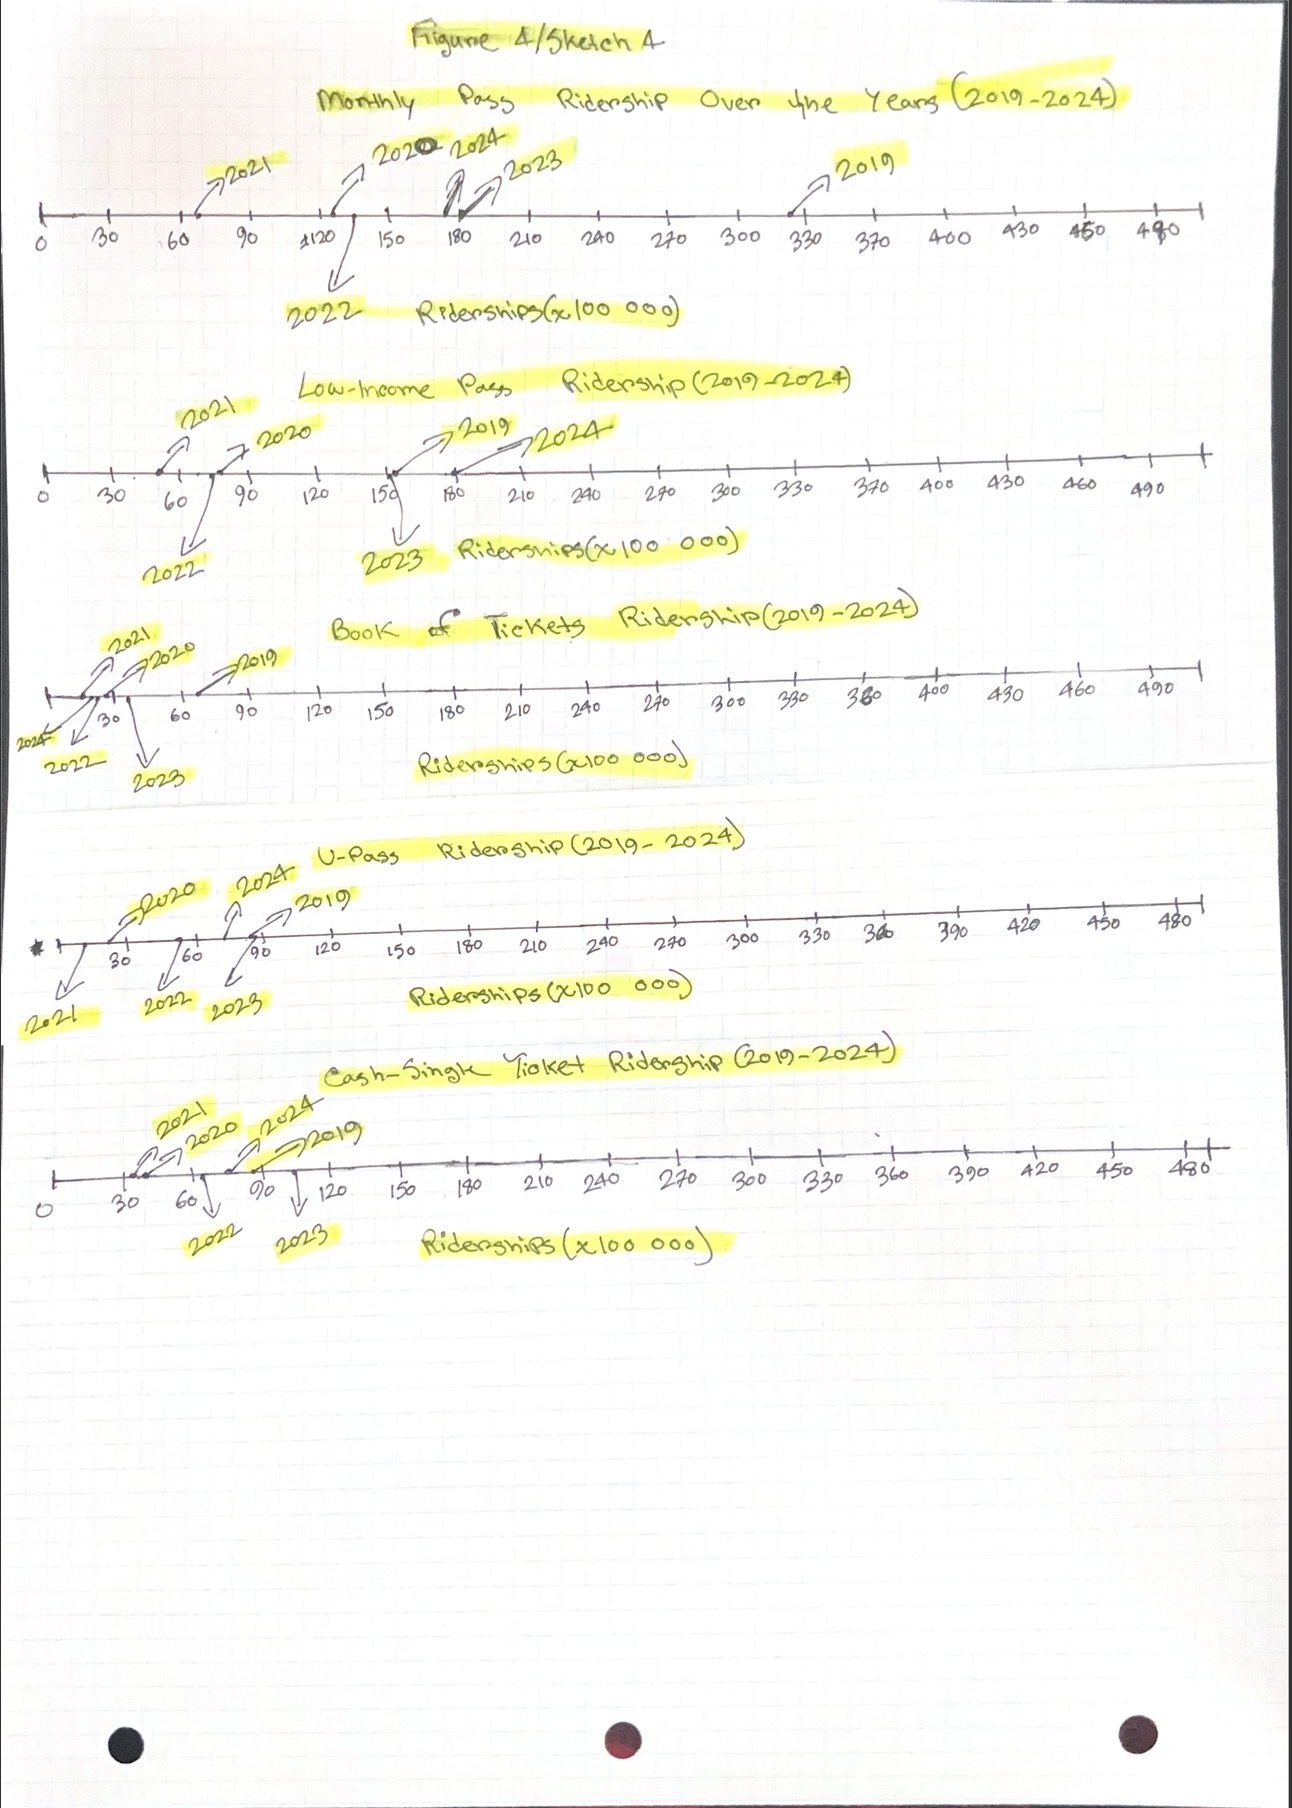 Figure 4/Sketch 4
Monthly Pass Ridership Over the Years (2019-2024)
2021 2020 2024 2023 2019
0 30 60 90 120 150 180 210 240 270 300 330 370 400 430 450 490
2022 Riderships(x100 000)
Low-Income Pass Ridership(2019-2024)
2021 2020 2019 2024
0 30 60 90 120 150 180 210 240 270 300 330 370 400 430 460 490
2022 2023 Riderships(x100 000)
Book of Tickets Ridership(2019-2024)
2021 2020 2019
30 60 90 120 150 180 210 240 270 300 330 360 400 430 460 490
2024 2022 2023 Riderships(x100 000)
U-Pass Ridership(2019-2024)
2020 2024 2019
30 60 90 120 150 180 210 240 270 300 330 360 390 420 450 480
2021 2022 2023 Riderships(x100 000)
Cash-Single Ticket Ridership (2019-2024)
2021 2020 2024 2019
0 30 60 90 120 150 180 210 240 270 300 330 360 390 420 450 480
2022 2023 Riderships(x100 000)